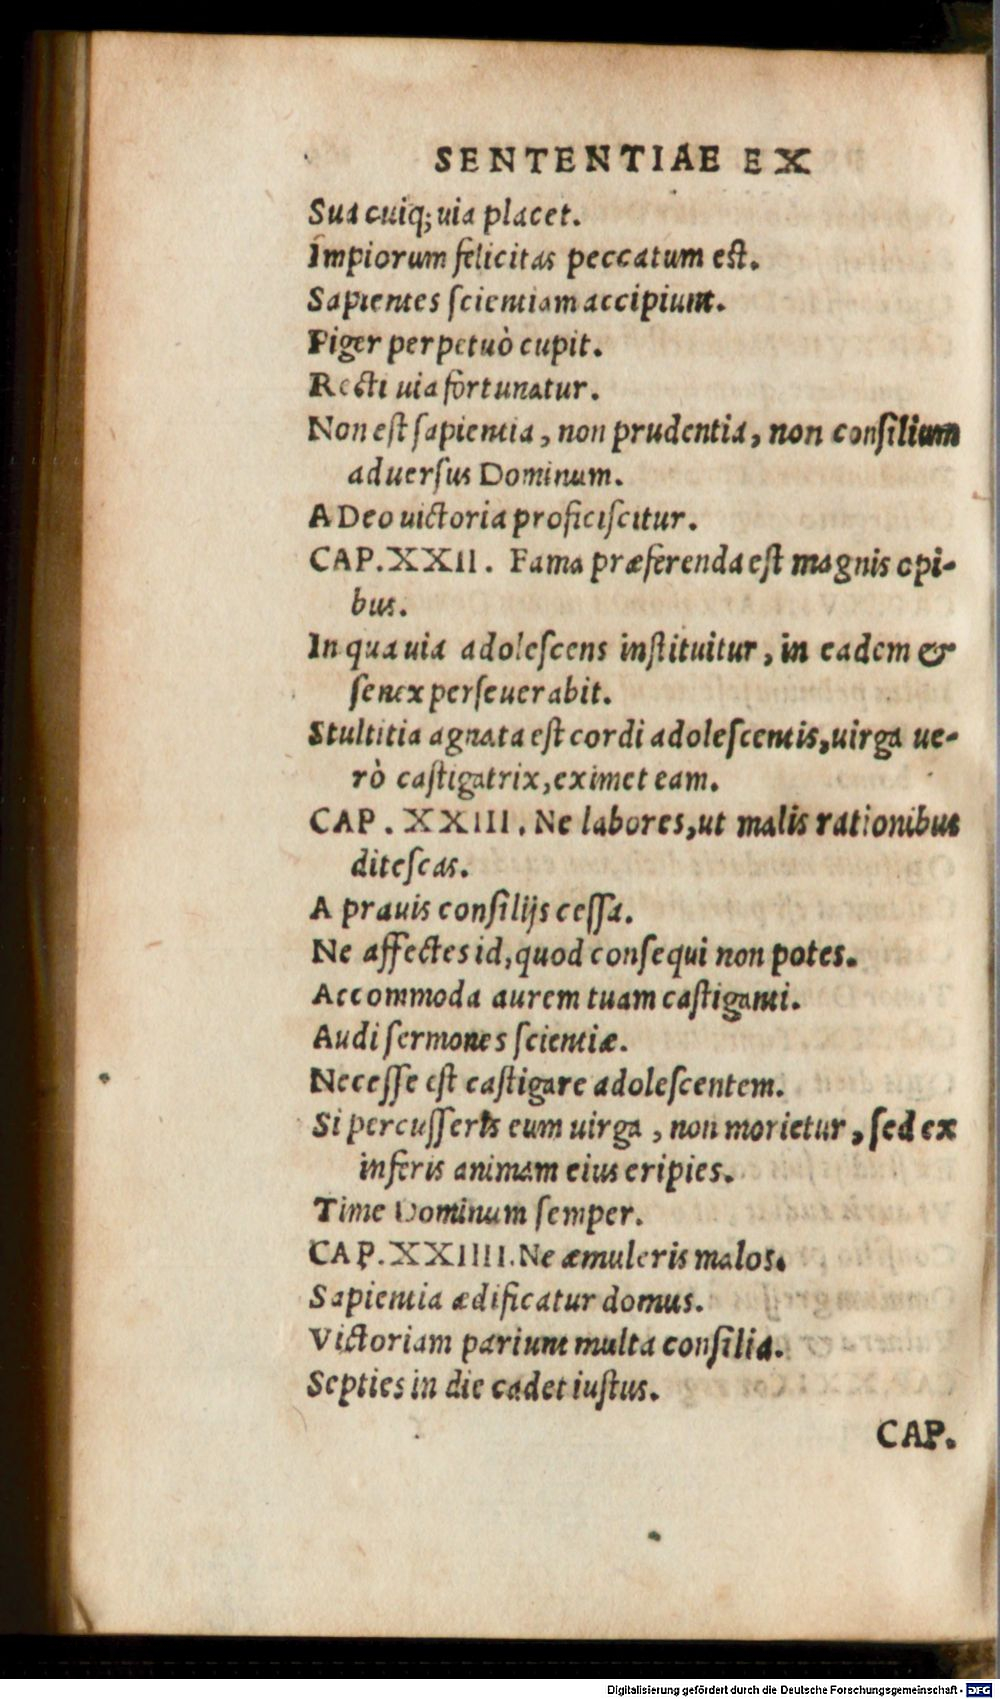 SENTENTIAE EX
Sua cuiq; uia placet.
Impiorum felicitas peccatum est.
Sapientes scientiam accipiunt.
Piger perpetuò cupit.
Recti uia fortunatur.
Non est sapientia, non prudentia, non consilium
aduersus Dominum.
A Deo uictoria proficiscitur.
CAP. XXII. Fama præferenda est magnis opi-
bus.
In qua uia adolescens instituitur, in eadem &
senex perseuerabit.
Stultitia agnata est cordi adolescentis, uirga ue-
rò castigatrix, eximet eam.
CAP. XXIII. Ne labores, ut malis rationibus
ditescas.
A prauis consilijs cessa.
Ne affectes id, quod consequi non potes.
Accommoda aurem tuam castiganti.
Audi sermones scientiæ.
Necesse est castigare adolescentem.
Si percusseris eum uirga, non morietur, sed ex
inferis animam eius eripies.
Time Dominum semper.
CAP. XXIIII. Ne æmuleris malos.
Sapientia ædificatur domus.
Victoriam pariunt multa consilia.
Septies in die cadet iustus.
CAP.
Digitalisierung gefördert durch die Deutsche Forschungsgemeinschaft - DFG